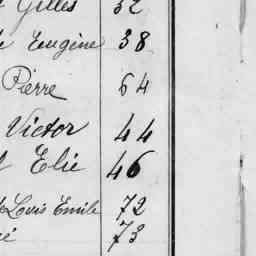 Gilles 32
Eugène 38
Pierre 64
Victor 44
Elie 46
Louis Emile 72
73